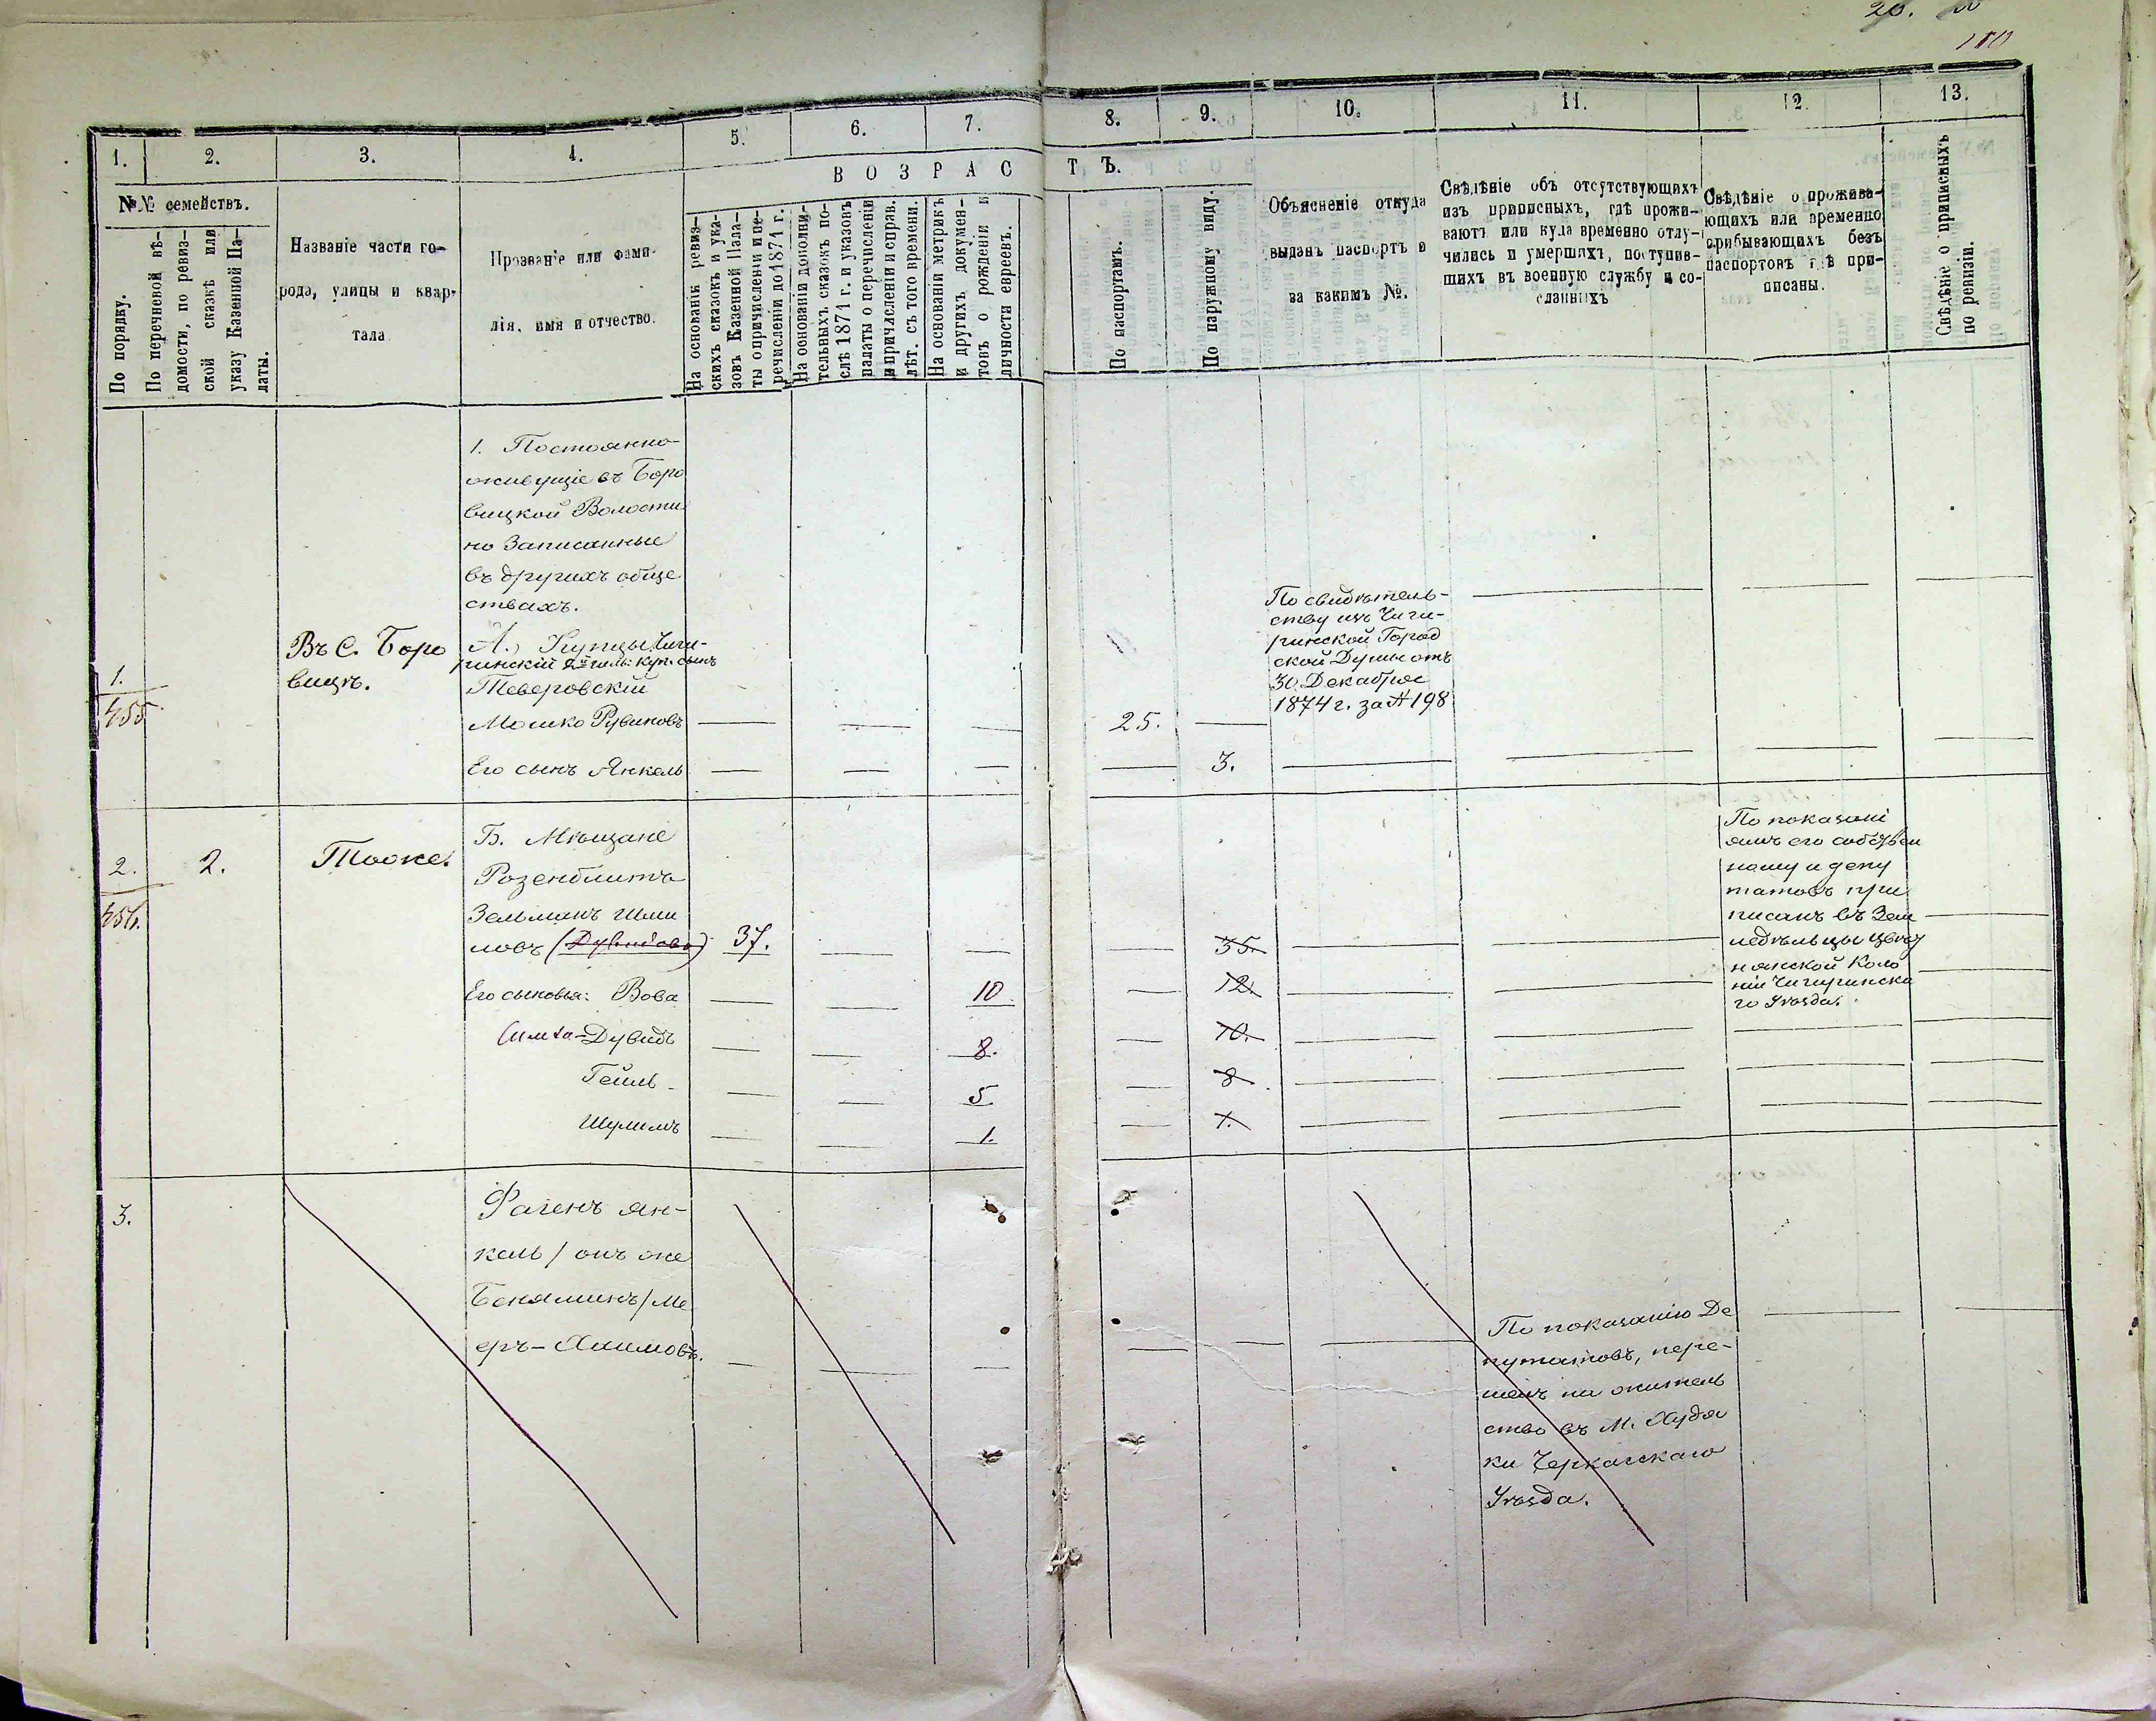 20.
180
1.
2.
3.
4.
5.
6.
7.
8.
9.
10.
11.
12.
13.
В О З Р А С Т Ъ.
№№ семействъ.
По порядку.
По перечневой вѣ-
домости, по ревиз-
ской сказкѣ или
указу Казенной Па-
латы.
Названіе части го-
рода, улицы и квар-
тала
Прозваніе или фами-
лія, имя и отчество.
На основаніи ревиз-
скихъ сказокъ и ука-
зовъ Казенной Пала-
ты о причисленіи и пе-
речисленіи до 1874 г.
На основаніи дополни-
тельныхъ сказокъ по-
слѣ 1874 г. и указовъ
палаты о перечисленіи
и причисленіи и справ.
лѣт. съ того времени.
На основаніи метрикъ
и другихъ докумен-
товъ о рожденіи и
личности евреевъ.
По паспортамъ.
По наружному виду.
Объясненіе откуда
выданъ паспортъ и
за какимъ №.
Свѣдѣніе объ отсутствующихъ
изъ приписныхъ, гдѣ прожи-
ваютъ или куда временно отлу-
чились и умершихъ, поступив-
шихъ въ военную службу и со-
сланныхъ
Свѣдѣніе о прожива-
ющихъ или временно
прибывающихъ безъ
паспортовъ гдѣ при-
писаны.
Свѣдѣніе о приписныхъ
по ревизіи.
1. Постоянно-
живущіе въ Боро
вицкой Волости
но Записанные
въ другихъ обще
ствахъ.
1.
455
Въ С. Боро
вицѣ.
А., Купцы Чиги-
ринскій 2й гиль: куп. сынъ
Теверовскій
Мошко Рувиновъ
25.
По свидѣтель-
ству изъ Чиги-
ринской Город
ской Думы отъ
30 Декабря
1874 г. за № 198
Его сынъ Янкель
3.
2.
456.
2.
Тоже.
Б. Мѣщане
Розенблитъ
Зельманъ Шми
ловъ (Дувидовъ)
37.
35.
По показані
ямъ его собствен
ному и депу
татовъ при
писанъ въ Зем
ледѣльцы Цвѣт
нянской Коло
ніи Чигиринска
го Уѣзда.
Его сыновья: Вова
10
12.
Симха-Дувидъ
8.
10.
Гейль
5
8
Шулимъ
1.
1.
3.
Фагенъ Ян-
кель / онъ же
Беняминъ / Ме
еръ-Хаимовъ.
По показанію Де
путатовъ, пере-
шелъ на житель
ство въ М. Худя
ки Черкасскаго
Уѣзда.